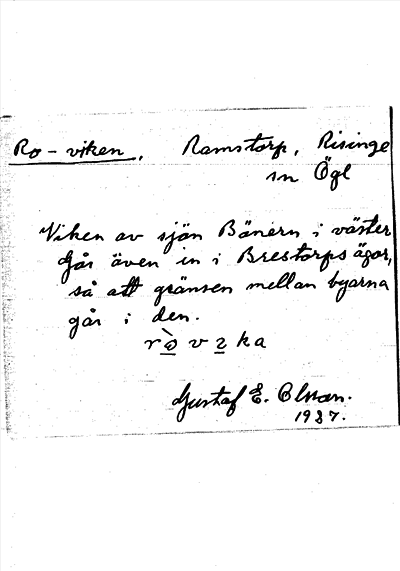 Ro-viken, Ramstorp, Risinge
sn Ögl
Viken av sjön Bönern i väster
Går även in i Brestorps ägor,
så att gränsen mellan byarna
går i den.
Gustaf E. Olson.
1937.